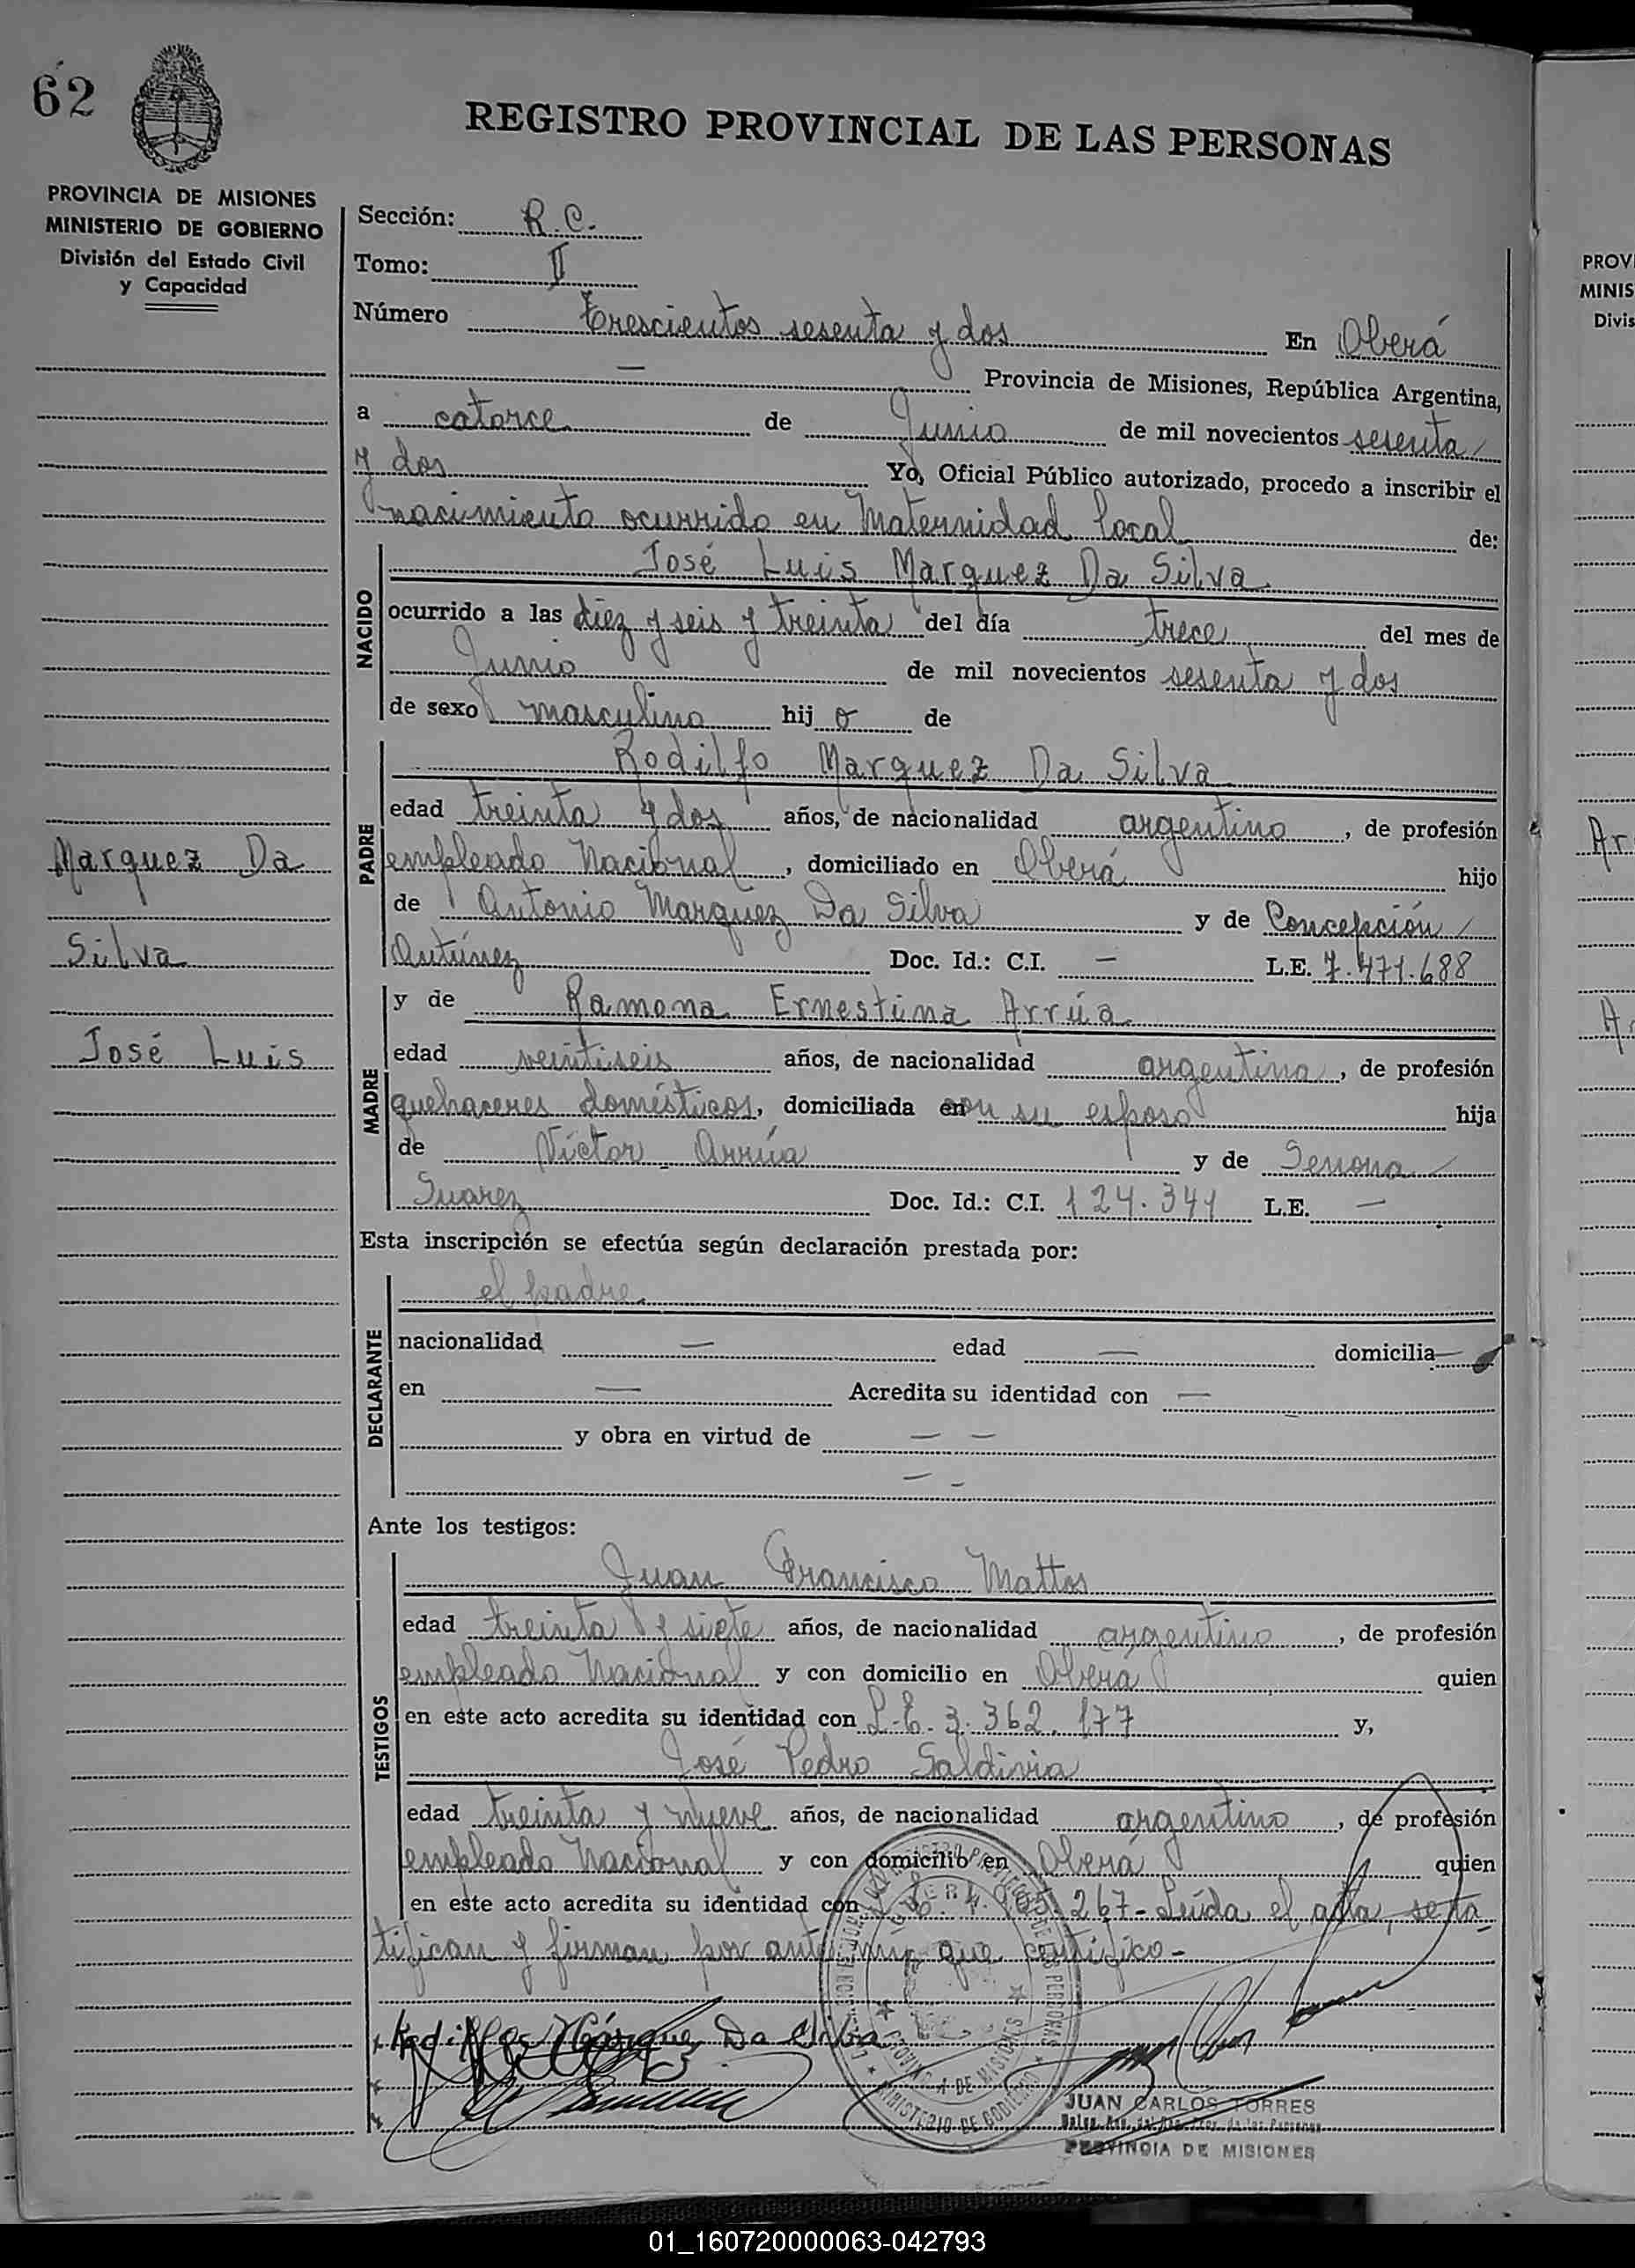 62
REGISTRO PROVINCIAL DE LAS PERSONAS
PROVINCIA DE MISIONES
MINISTERIO DE GOBIERNO
División del Estado Civil
y Capacidad
Marquez Da
Silva
José Luis
Sección: R.C.
Tomo: II
Número Trescientos sesenta y dos En Oberá
— Provincia de Misiones, República Argentina,
a catorce de Junio de mil novecientos sesenta
y dos Yo, Oficial Público autorizado, procedo a inscribir el
nacimiento ocurrido en Maternidad local de:
NACIDO
José Luis Marquez Da Silva
ocurrido a las diez y seis y treinta del día trece del mes de
Junio de mil novecientos sesenta y dos
de sexo masculino hijo de
PADRE
Rodilfo Marquez Da Silva
edad treinta y dos años, de nacionalidad argentino, de profesión
empleado Nacional, domiciliado en Oberá hijo
de Antonio Marquez Da Silva y de Concepción
Antúnez Doc. Id.: C.I. — L.E. 7.471.688
MADRE
y de Ramona Ernestina Arrúa
edad veintiseis años, de nacionalidad argentina, de profesión
quehaceres domésticos, domiciliada en con su esposo hija
de Víctor Arrúa y de Senona
Suarez Doc. Id.: C.I. 124.341 L.E. —
Esta inscripción se efectúa según declaración prestada por:
DECLARANTE
el padre.
nacionalidad — edad — domicilia —
en — Acredita su identidad con —
y obra en virtud de — —
— -
Ante los testigos:
TESTIGOS
Juan Francisco Mattos
edad treinta y siete años, de nacionalidad argentino, de profesión
empleado Nacional y con domicilio en Oberá quien
en este acto acredita su identidad con L.E. 3.362.177 y,
José Pedro Saldivia
edad treinta y nueve años, de nacionalidad argentino, de profesión
empleado Nacional y con domicilio en Oberá quien
en este acto acredita su identidad con 267- Leída el acta, se ra
tifican y firman por ante mi que certifico-
Rodilfo Márquez Da Silva
MINISTERIO DE GOBIERNO
PROVINCIA DE MISIONES
JUAN CARLOS TORRES
PROVINCIA DE MISIONES
PROVI
MINIS
Divis
Ar
A
01_160720000063-042793